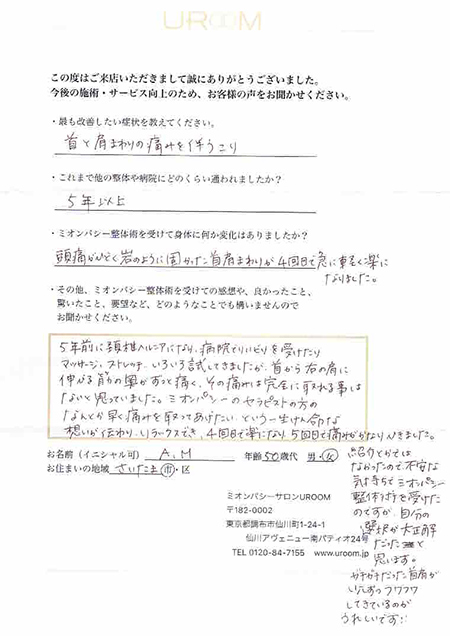 UROOM
この度はご来店いただきまして誠にありがとうございました。
今後の施術・サービス向上のため、お客様の声をお聞かせください。
・最も改善したい症状を教えてください。
首と肩まわりの痛みを伴うこり
・これまで他の整体や病院にどのくらい通われましたか？
5年以上
・ミオンパシー整体術を受けて身体に何か変化はありましたか？
頭痛がひどく岩のように固かった首肩まわりが4回目で急に軽く楽に
なりました。
・その他、ミオンパシー整体術を受けての感想や、良かったこと、
驚いたこと、要望など、どのようなことでも構いませんので
お聞かせください。
5年前に頚椎ヘルニアになり、病院でリハビリを受けたり
マッサージ、ストレッチ、いろいろ試してきましたが、首から右の肩に
伸びる筋の奥がずっと痛く、その痛みは完全に取れる事は
ないと思っていました。ミオンパシーのセラピストの方の
なんとか早く痛みを取ってあげたいという一生けん命な
想いが伝わり、リラックスでき、4回目で楽になり、5回目で痛みがかなりひきました。
紹介とかでは
なかったので、不安な
気持ちでミオンパシー
整体術を受けた
のですが、自分の
選択が大正解
だったと
思います。
ガチガチだった首肩が
少しずつフワフワ
してきているのが
うれしいです!!
お名前（イニシャル可） A.M 年齢50歳代 男・女
お住まいの地域 さいたま 市・区
ミオンパシーサロンUROOM
〒182-0002
東京都調布市仙川町1-24-1
仙川アヴェニュー南パティオ24号
TEL 0120-84-7155 www.uroom.jp